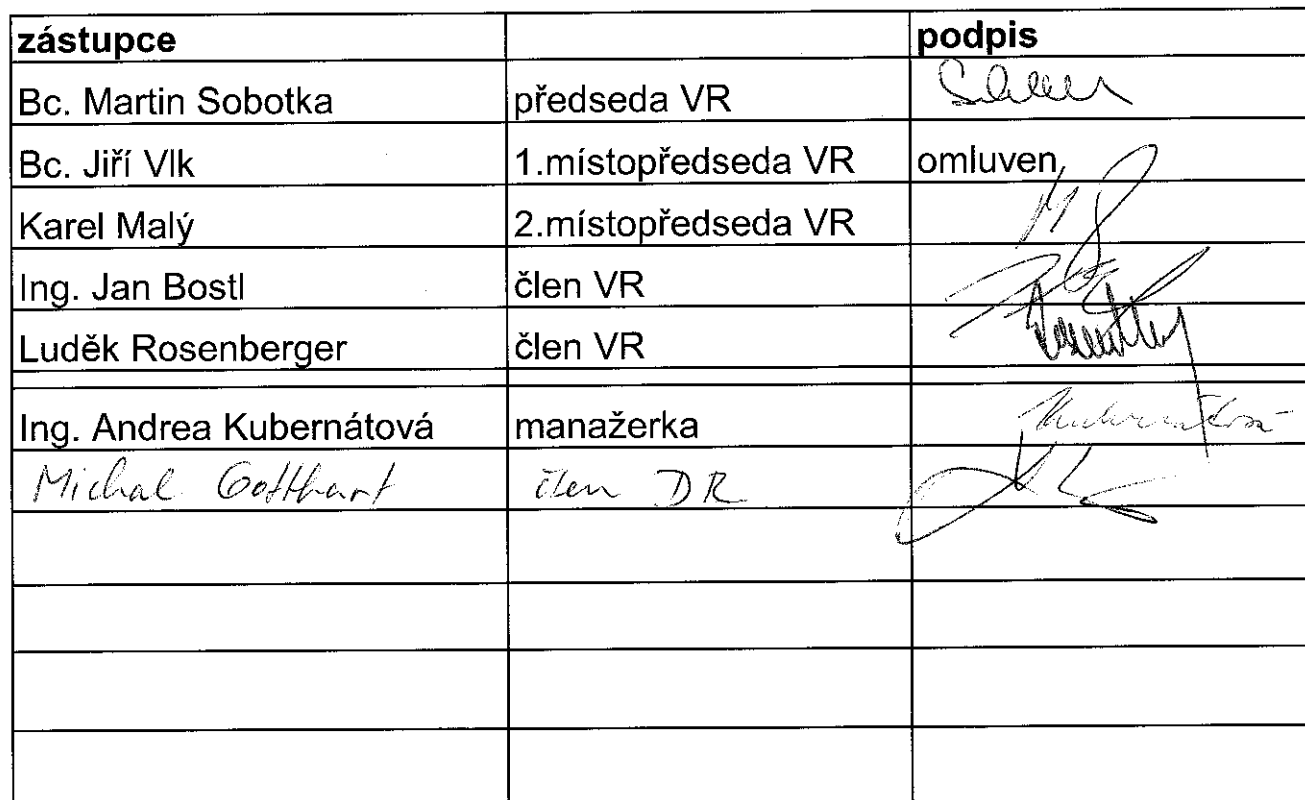 zástupce podpis
Bc. Martin Sobotka předseda VR
Bc. Jiří Vlk 1.místopředseda VR omluven
Karel Malý 2.místopředseda VR
Ing. Jan Bostl člen VR
Luděk Rosenberger člen VR
Ing. Andrea Kubernátová manažerka Kubernátová
Michal Gotthart člen DR